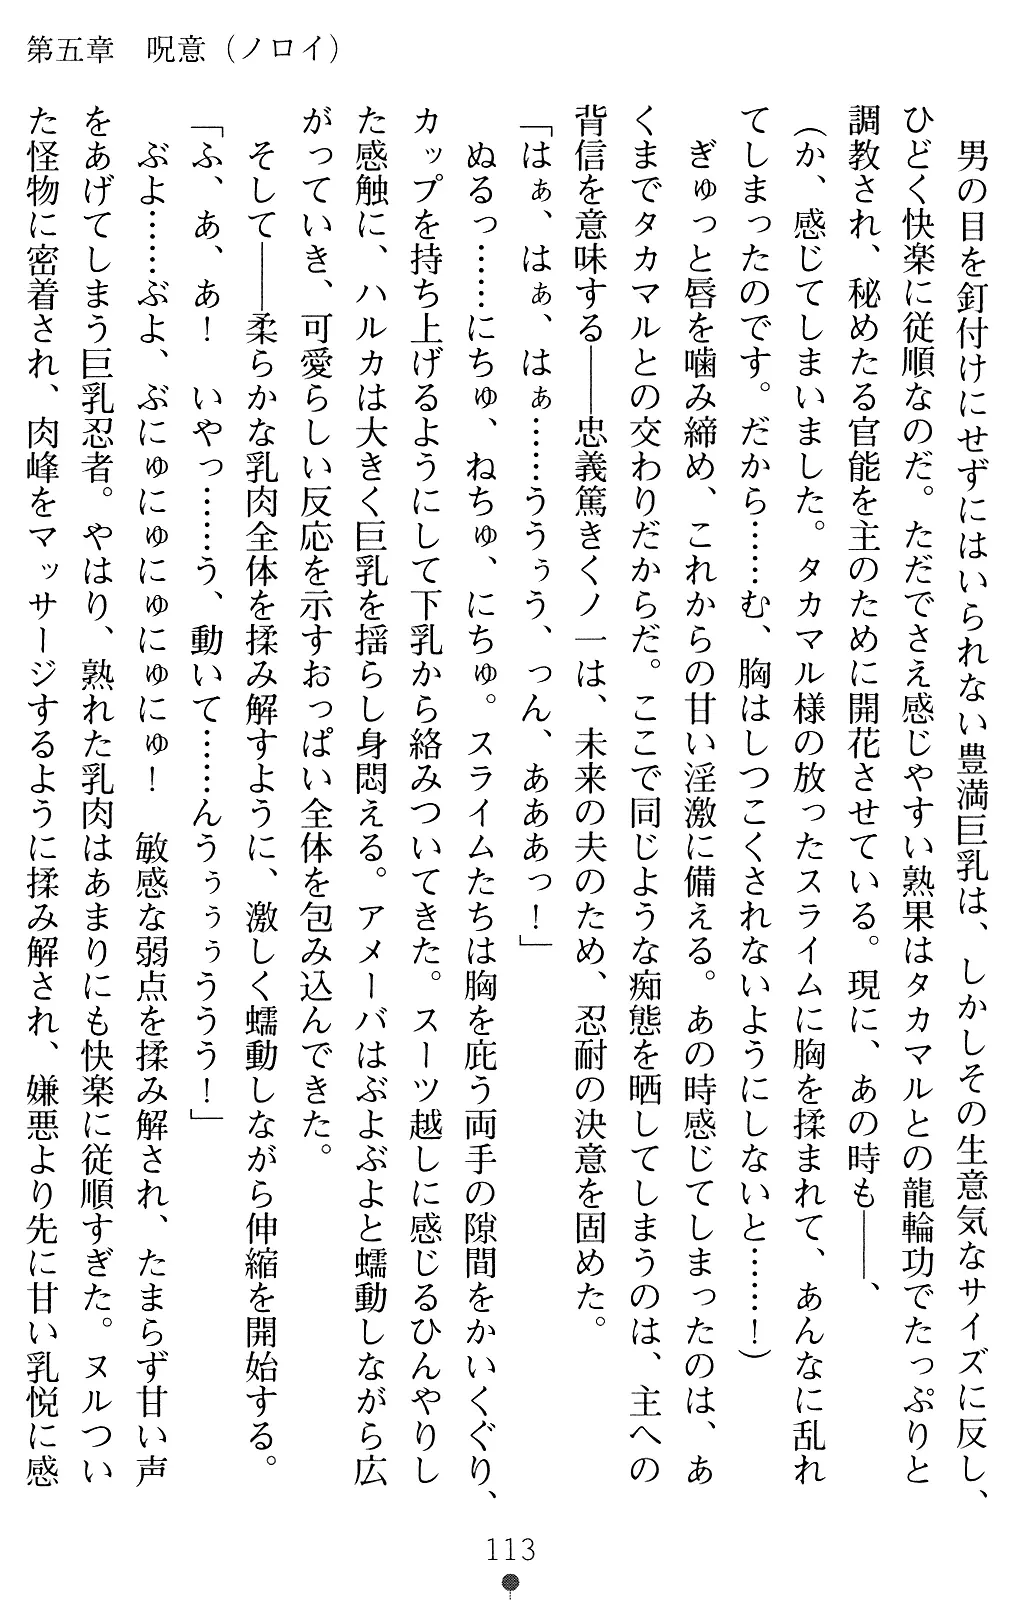 第五章　呪意（ノロイ）
　男の目を釘付けにせずにはいられない豊満巨乳は、しかしその生意気なサイズに反し、
ひどく快楽に従順なのだ。ただでさえ感じやすい熟果はタカマルとの龍輪功でたっぷりと
調教され、秘めたる官能を主のために開花させている。現に、あの時も――、
（か、感じてしまいました。タカマル様の放ったスライムに胸を揉まれて、あんなに乱れ
てしまったのです。だから……む、胸はしつこくされないようにしないと……！）
　ぎゅっと唇を噛み締め、これからの甘い淫激に備える。あの時感じてしまったのは、あ
くまでタカマルとの交わりだからだ。ここで同じような痴態を晒してしまうのは、主への
背信を意味する――忠義篤きくノ一は、未来の夫のため、忍耐の決意を固めた。
「はぁ、はぁ、はぁ……ううぅう、っん、あああっ！」
　ぬるっ……にちゅ、ねちゅ、にちゅ。スライムたちは胸を庇う両手の隙間をかいくぐり、
カップを持ち上げるようにして下乳から絡みついてきた。スーツ越しに感じるひんやりし
た感触に、ハルカは大きく巨乳を揺らし身悶える。アメーバはぶよぶよと蠕動しながら広
がっていき、可愛らしい反応を示すおっぱい全体を包み込んできた。
　そして――柔らかな乳肉全体を揉み解すように、激しく蠕動しながら伸縮を開始する。
「ふ、あ、あ！　いやっ……う、動いて……んうぅぅぅううう！」
　ぶよ……ぶよ、ぶにゅにゅにゅにゅにゅ！　敏感な弱点を揉み解され、たまらず甘い声
をあげてしまう巨乳忍者。やはり、熟れた乳肉はあまりにも快楽に従順すぎた。ヌルつい
た怪物に密着され、肉峰をマッサージするように揉み解され、嫌悪より先に甘い乳悦に感
113